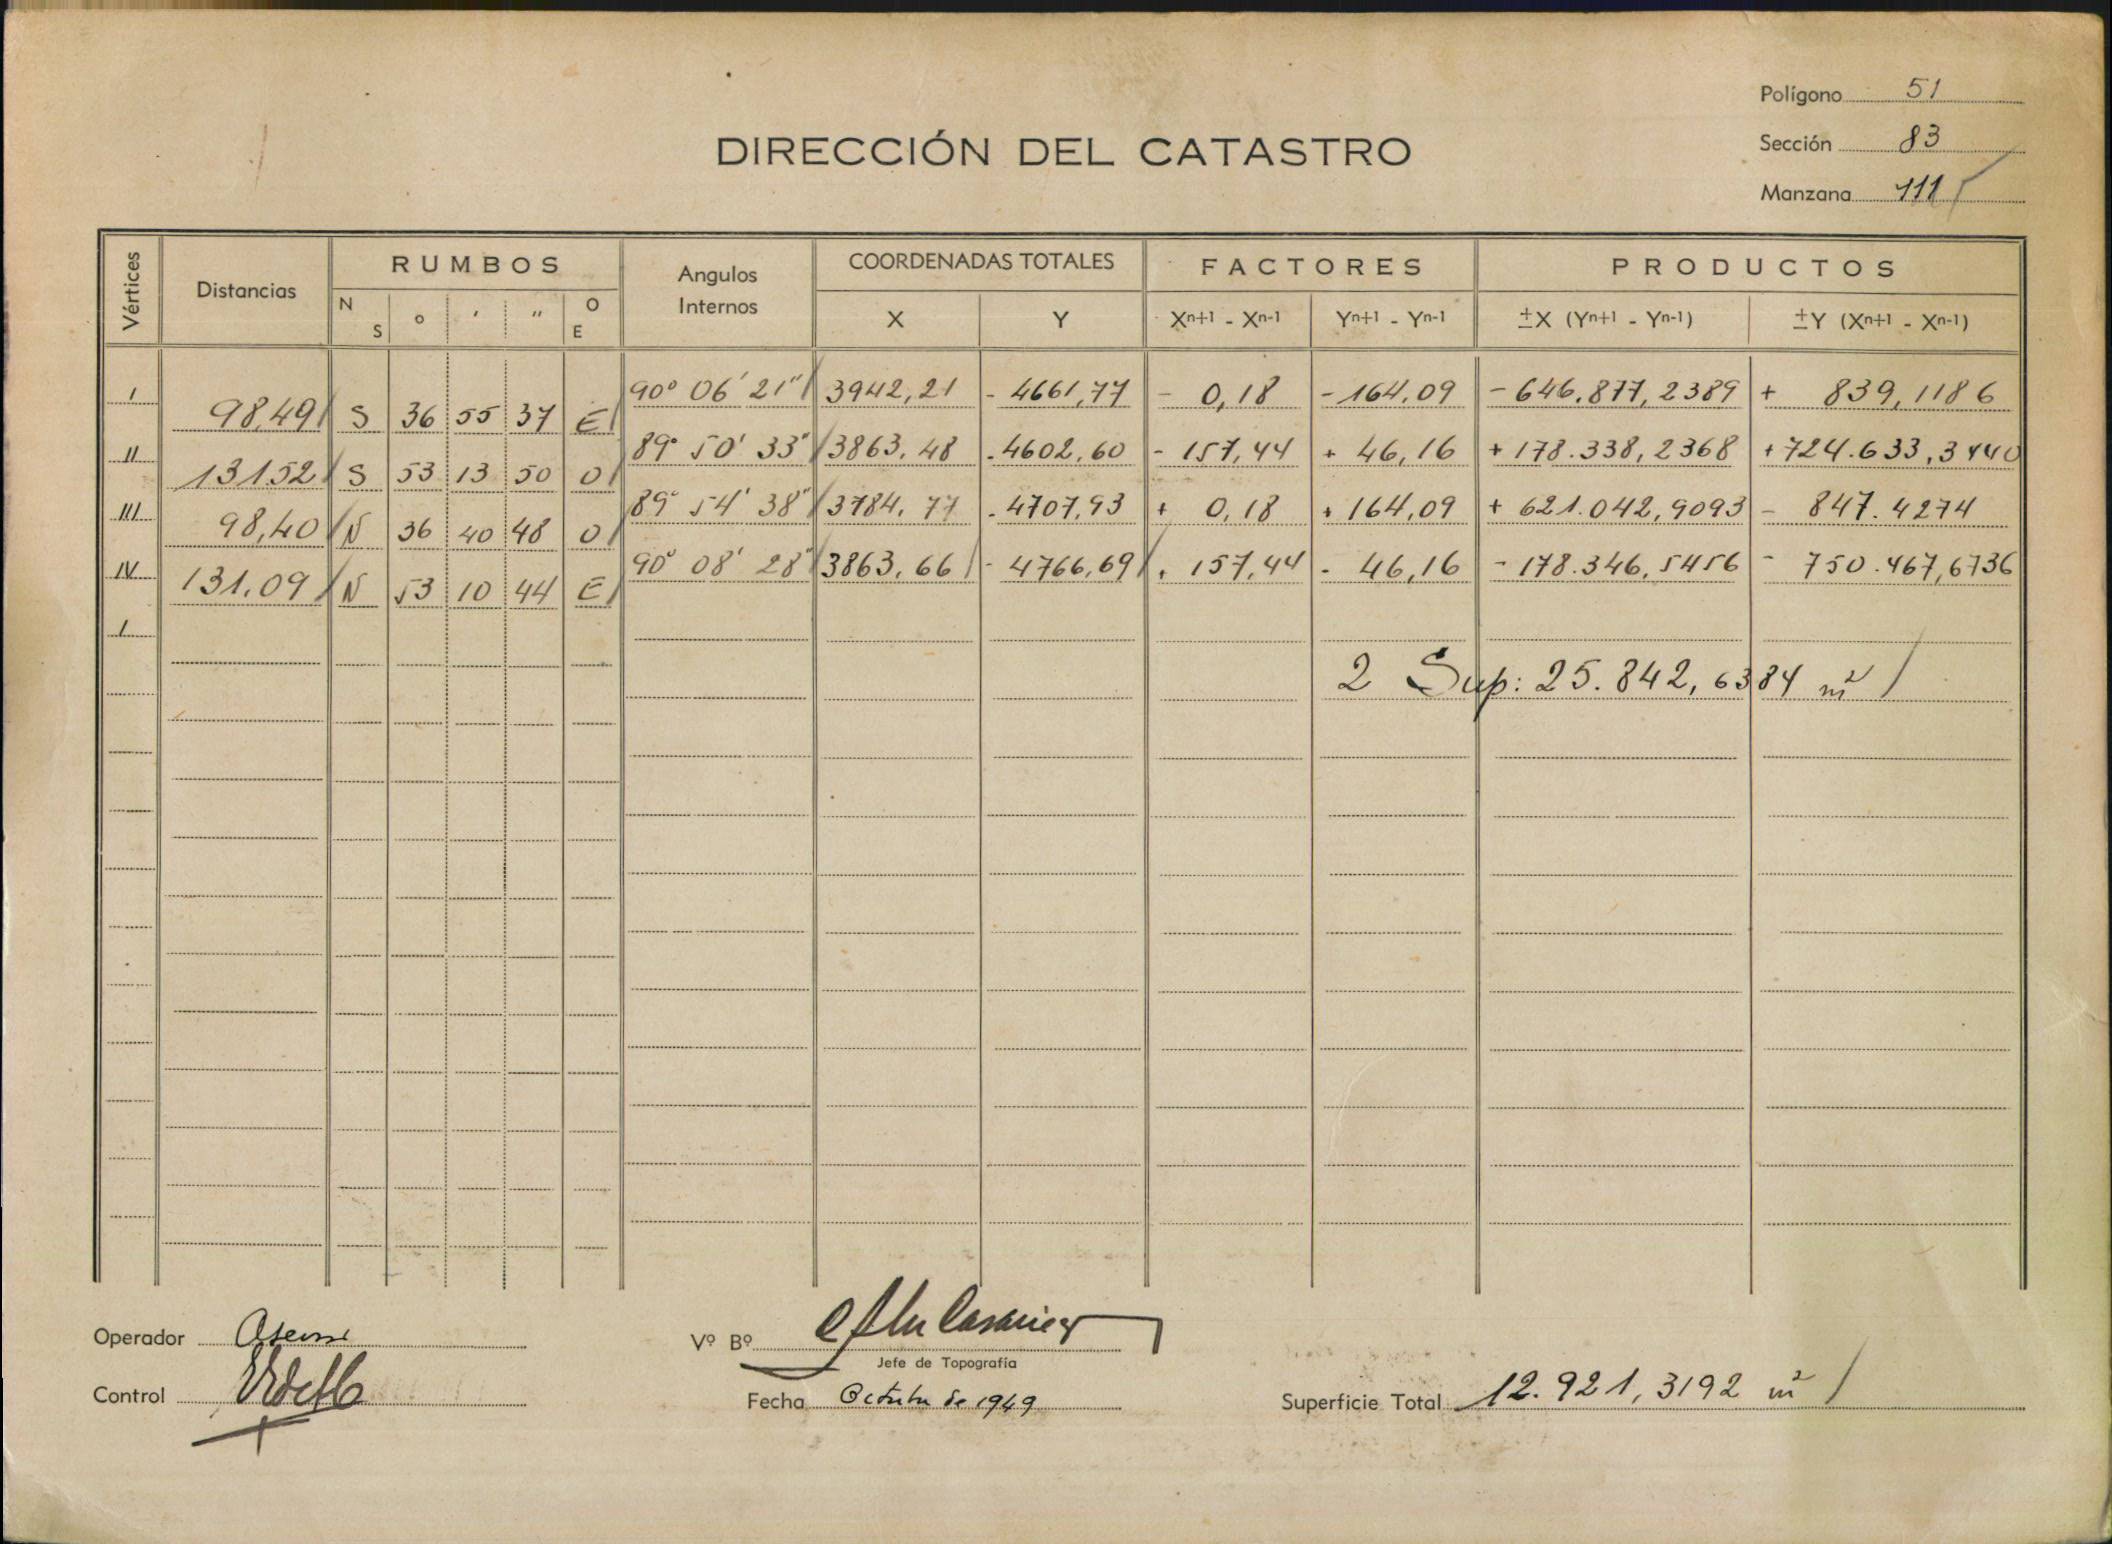 Polígono 51
DIRECCIÓN DEL CATASTRO
Sección 83
Manzana 111
Vértices Distancias RUMBOS Angulos Internos COORDENADAS TOTALES FACTORES PRODUCTOS
N S ° ' " O E X Y Xn+1 - Xn-1 Yn+1 - Yn-1 ±X (Yn+1 - Yn-1) ±Y (Xn+1 - Xn-1)
I 90° 06' 21" 3942,21 - 4661,77 - 0,18 - 164,09 - 646.877,2389 + 839,1186
98,49 S 36 55 37 E
II 89° 50' 33" 3863,48 - 4602,60 - 157,44 + 46,16 + 178.338,2368 + 724.633,3440
131.52 S 53 13 50 O
III 89° 54' 38" 3784,77 - 4707,93 + 0,18 + 164,09 + 621.042,9093 - 847.4274
98,40 N 36 40 48 O
IV 90° 08' 28" 3863,66 - 4766,69 + 157,44 - 46,16 - 178.346,5456 - 750.467,6736
131.09 N 53 10 44 E
I
2 Sup: 25.842,6384 m²
Operador
Vº Bº
Jefe de Topografía
Control
Fecha Octubre de 1949
Superficie Total 12.921,3192 m²